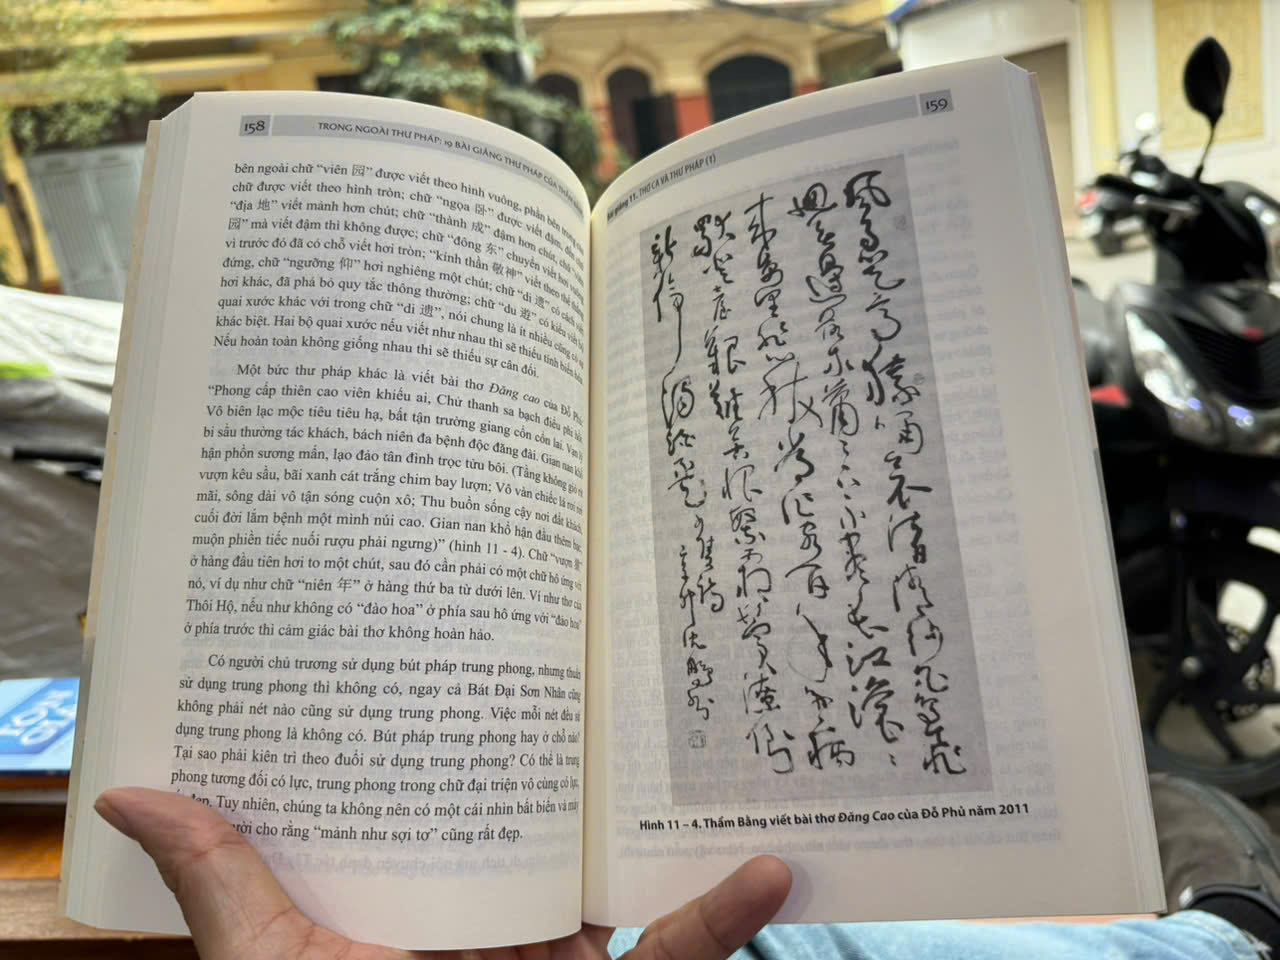 158
TRONG NGOÀI THƯ PHÁP: 19 BÀI GIẢNG THƯ PHÁP CỦA THẨM
bên ngoài chữ “viên 园” được viết theo hình vuông, phần bên trong
chữ được viết theo hình tròn; chữ “ngọa 卧” được viết đậm,
“địa 地” viết mảnh hơn chút; chữ “thành 成” đậm hơn chút, chữ
园” mà viết đậm thì không được; chữ “đông 东” chuyên viết hơi vuông
vì trước đó đã có chỗ viết hơi tròn; “kính thần 敬神” viết theo thế
đứng, chữ “ngưỡng 仰” hơi nghiêng một chút; chữ “di 遗” có cách viết
hơi khác, đã phá bỏ quy tắc thông thường; chữ “du 遊” có kiểu viết bộ
quai xước khác với trong chữ “di 遗”, nói chung là ít nhiều cũng có sự
khác biệt. Hai bộ quai xước nếu viết như nhau thì sẽ thiếu tính biến hóa.
Nếu hoàn toàn không giống nhau thì sẽ thiếu sự cân đối.
Một bức thư pháp khác là viết bài thơ Đăng cao của Đỗ Phủ:
“Phong cấp thiên cao viên khiếu ai, Chử thanh sa bạch điểu phi hồi.
Vô biên lạc mộc tiêu tiêu hạ, bất tận trường giang cổn cổn lai. Vạn lý
bi sầu thường tác khách, bách niên đa bệnh độc đăng đài. Gian nan khổ
hận phồn sương mấn, lạo đảo tân đình trọc tửu bôi. (Tầng không gió
vượn kêu sầu, bãi xanh cát trắng chim bay lượn; Vô vàn chiếc lá rơi rơi
mãi, sông dài vô tận sóng cuộn xô; Thu buồn sống cậy nơi đất khách
cuối đời lắm bệnh một mình núi cao. Gian nan khổ hận đầu thêm bạc,
muộn phiền tiếc nuối rượu phải ngưng)” (hình 11 - 4). Chữ “vượn
ở hàng đầu hơi to một chút, sau đó cần phải có một chữ hô ứng với
nó, ví dụ như chữ “niên 年” ở hàng thứ ba từ dưới lên. Ví như thơ của
Thôi Hộ, nếu như không có “đào hoa” ở phía sau hô ứng với “đào hoa”
ở phía trước thì cảm giác bài thơ không hoàn hảo.
Có người chủ trương sử dụng bút pháp trung phong, nhưng thuần
sử dụng trung phong thì không có, ngay cả Bát Đại Sơn Nhân cũng
không phải nét nào cũng sử dụng trung phong. Việc mỗi nét đều sử
dụng trung phong là không có. Bút pháp trung phong hay ở chỗ nào?
Tại sao phải kiên trì theo đuổi sử dụng trung phong? Có thể là trung
phong tương đối có lực, trung phong trong chữ đại triện vô cùng có lực,
đẹp. Tuy nhiên, chúng ta không nên có một cái nhìn bất biến và máy
người cho rằng “mảnh như sợi tơ” cũng rất đẹp.
159
Bài giảng 11. THƠ CA VÀ THƯ PHÁP (1)
風急天高猿嘯哀渚清沙白鳥飛
迴無邊落木蕭蕭下不盡長江滾滾
来萬里悲秋常作客百年多病
獨登臺艱難苦恨繁霜鬢潦倒
新停濁酒杯
Hình 11 – 4. Thẩm Bằng viết bài thơ Đăng Cao của Đỗ Phủ năm 2011